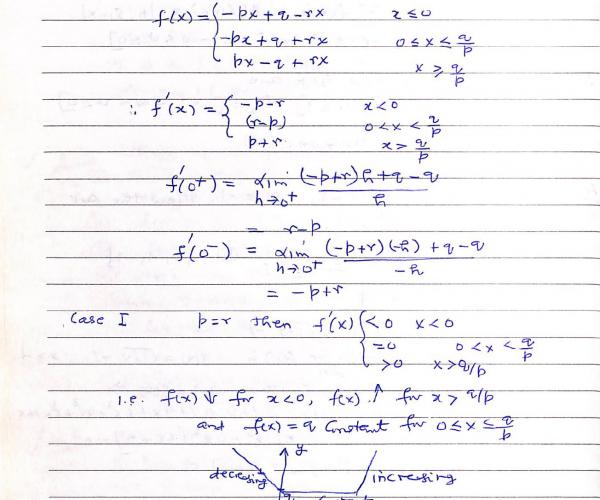 f(x) = { -px + q - rx    x ≤ 0
-px + q + rx    0 ≤ x ≤ q/p
px - q + rx    x ≥ q/p
∴ f'(x) = { -p-r    x < 0
(r-p)    0 < x < q/p
p+r    x > q/p
f'(0⁺) = lim h→0⁺ ((-p+r)h + q - q)/h
= r-p
f'(0⁻) = lim h→0⁺ ((-p+r)(-h) + q - q)/-h
= -p+r
Case I    p=r then f'(x) { <0    x<0
=0    0 < x < q/p
>0    x > q/p
i.e. f(x) ↓ for x<0, f(x) ↑ for x > q/p
and f(x) = q Constant for 0 ≤ x ≤ q/p
y
decreasing    increasing